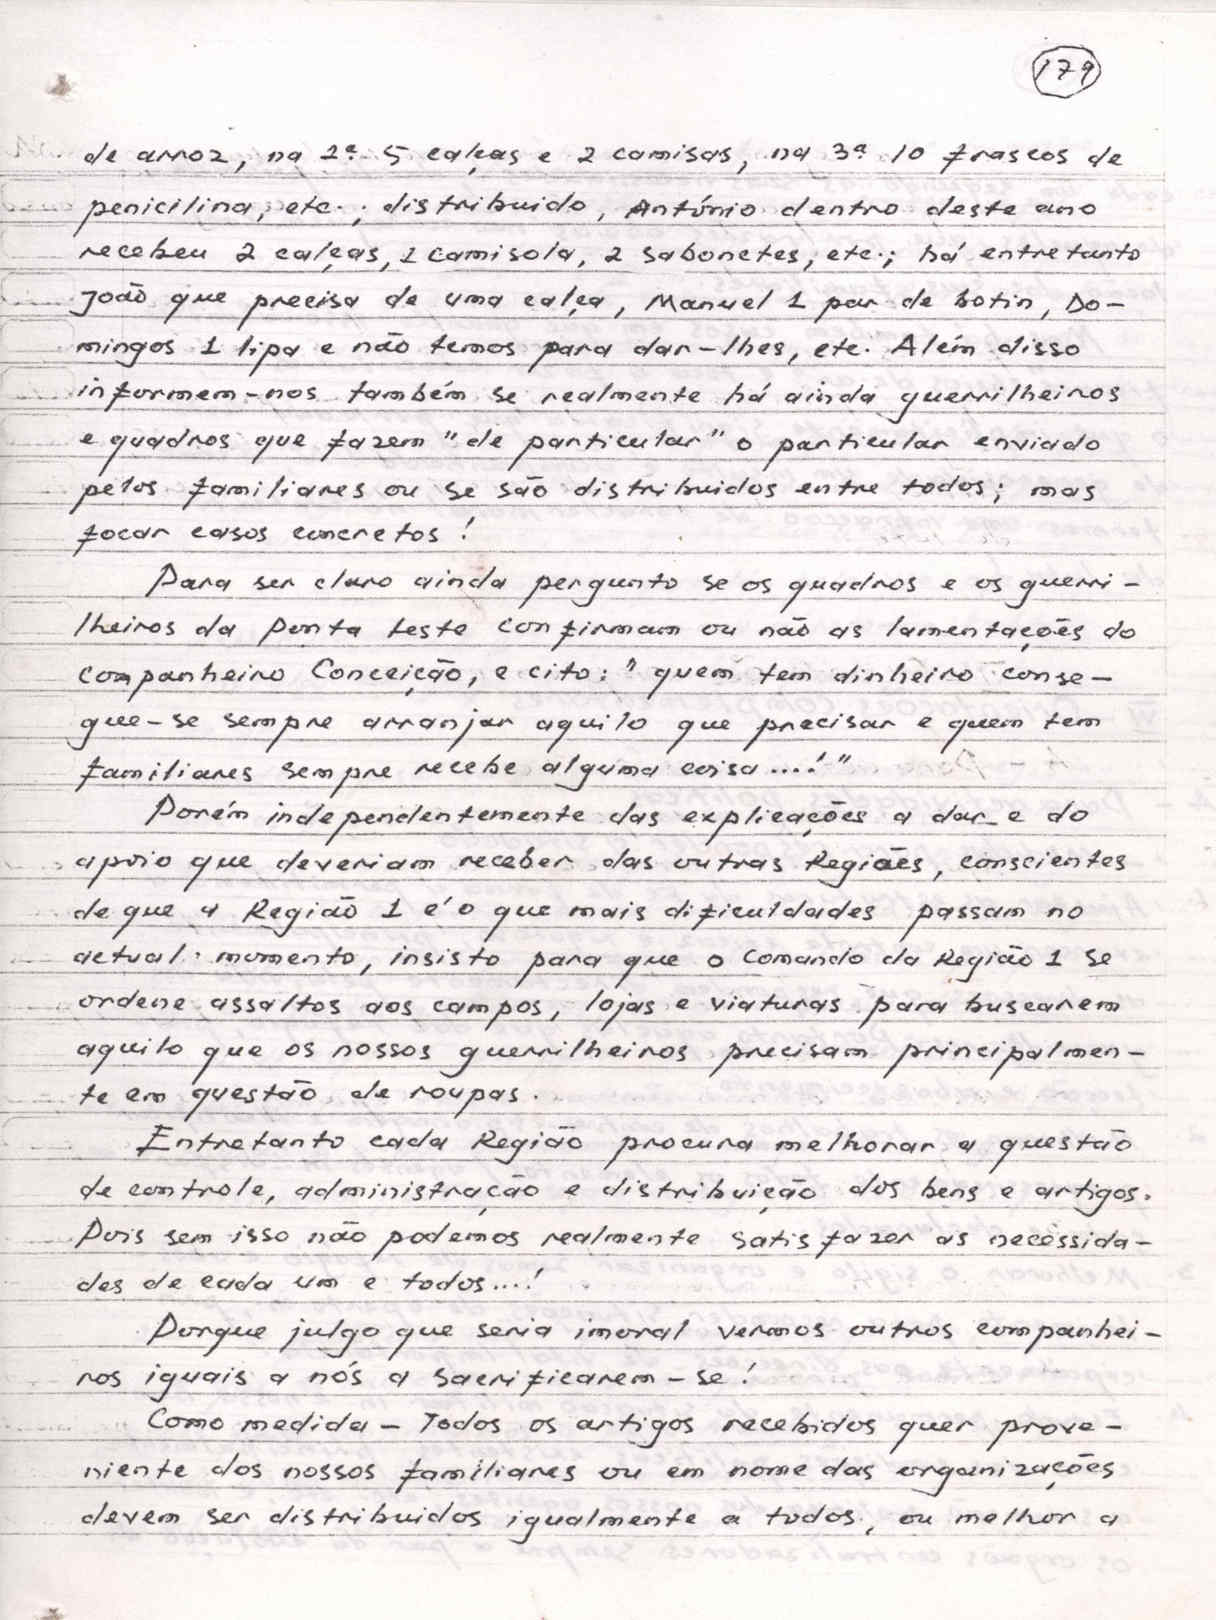 179
de arroz, na 2ª 5 calças e 2 camisas, na 3ª 10 frascos de
penicilina, etc.; distribuido, António dentro deste ano
recebeu 2 calças, 1 camisola, 2 sabonetes, etc.; há entretanto
João que precisa de uma calça, Manuel 1 par de botin, Do-
mingos 1 lipa e não temos para dar-lhes, etc. Além disso
informem-nos também se realmente há ainda guerrilheiros
e quadros que fazem "de particular" o particular enviado
pelos familiares ou se são distribuidos entre todos; mas
focar casos concretos!
Para ser claro ainda pergunto se os quadros e os guerri-
lheiros da Ponta Leste confirmam ou não as lamentações do
companheiro Conceição, e cito: "quem tem dinheiro conse-
gue-se sempre arranjar aquilo que precisar e quem tem
familiares sempre recebe alguma coisa...!"
Porém independentemente das explicações a dar e do
apoio que deveriam receber das outras Regiães, conscientes
de que a Região 1 é o que mais dificuldades passam no
actual momento, insisto para que o Comando da Região 1 se
ordene assaltos aos campos, lojas e viaturas para buscarem
aquilo que os nossos guerrilheiros precisam principalmen-
te em questão de roupas.
Entretanto cada Região procura melhorar a questão
de controle, administração e distribuição dos bens e artigos.
Pois sem isso não podemos realmente satisfazer as necessida-
des de cada um e todos...!
Porque julgo que seria imoral vermos outros companhei-
ros iguais a nós a sacrificarem-se!
Como medida - Todos os artigos recebidos quer prove-
niente dos nossos familiares ou em nome das organizações
devem ser distribuidos igualmente a todos, ou melhor a